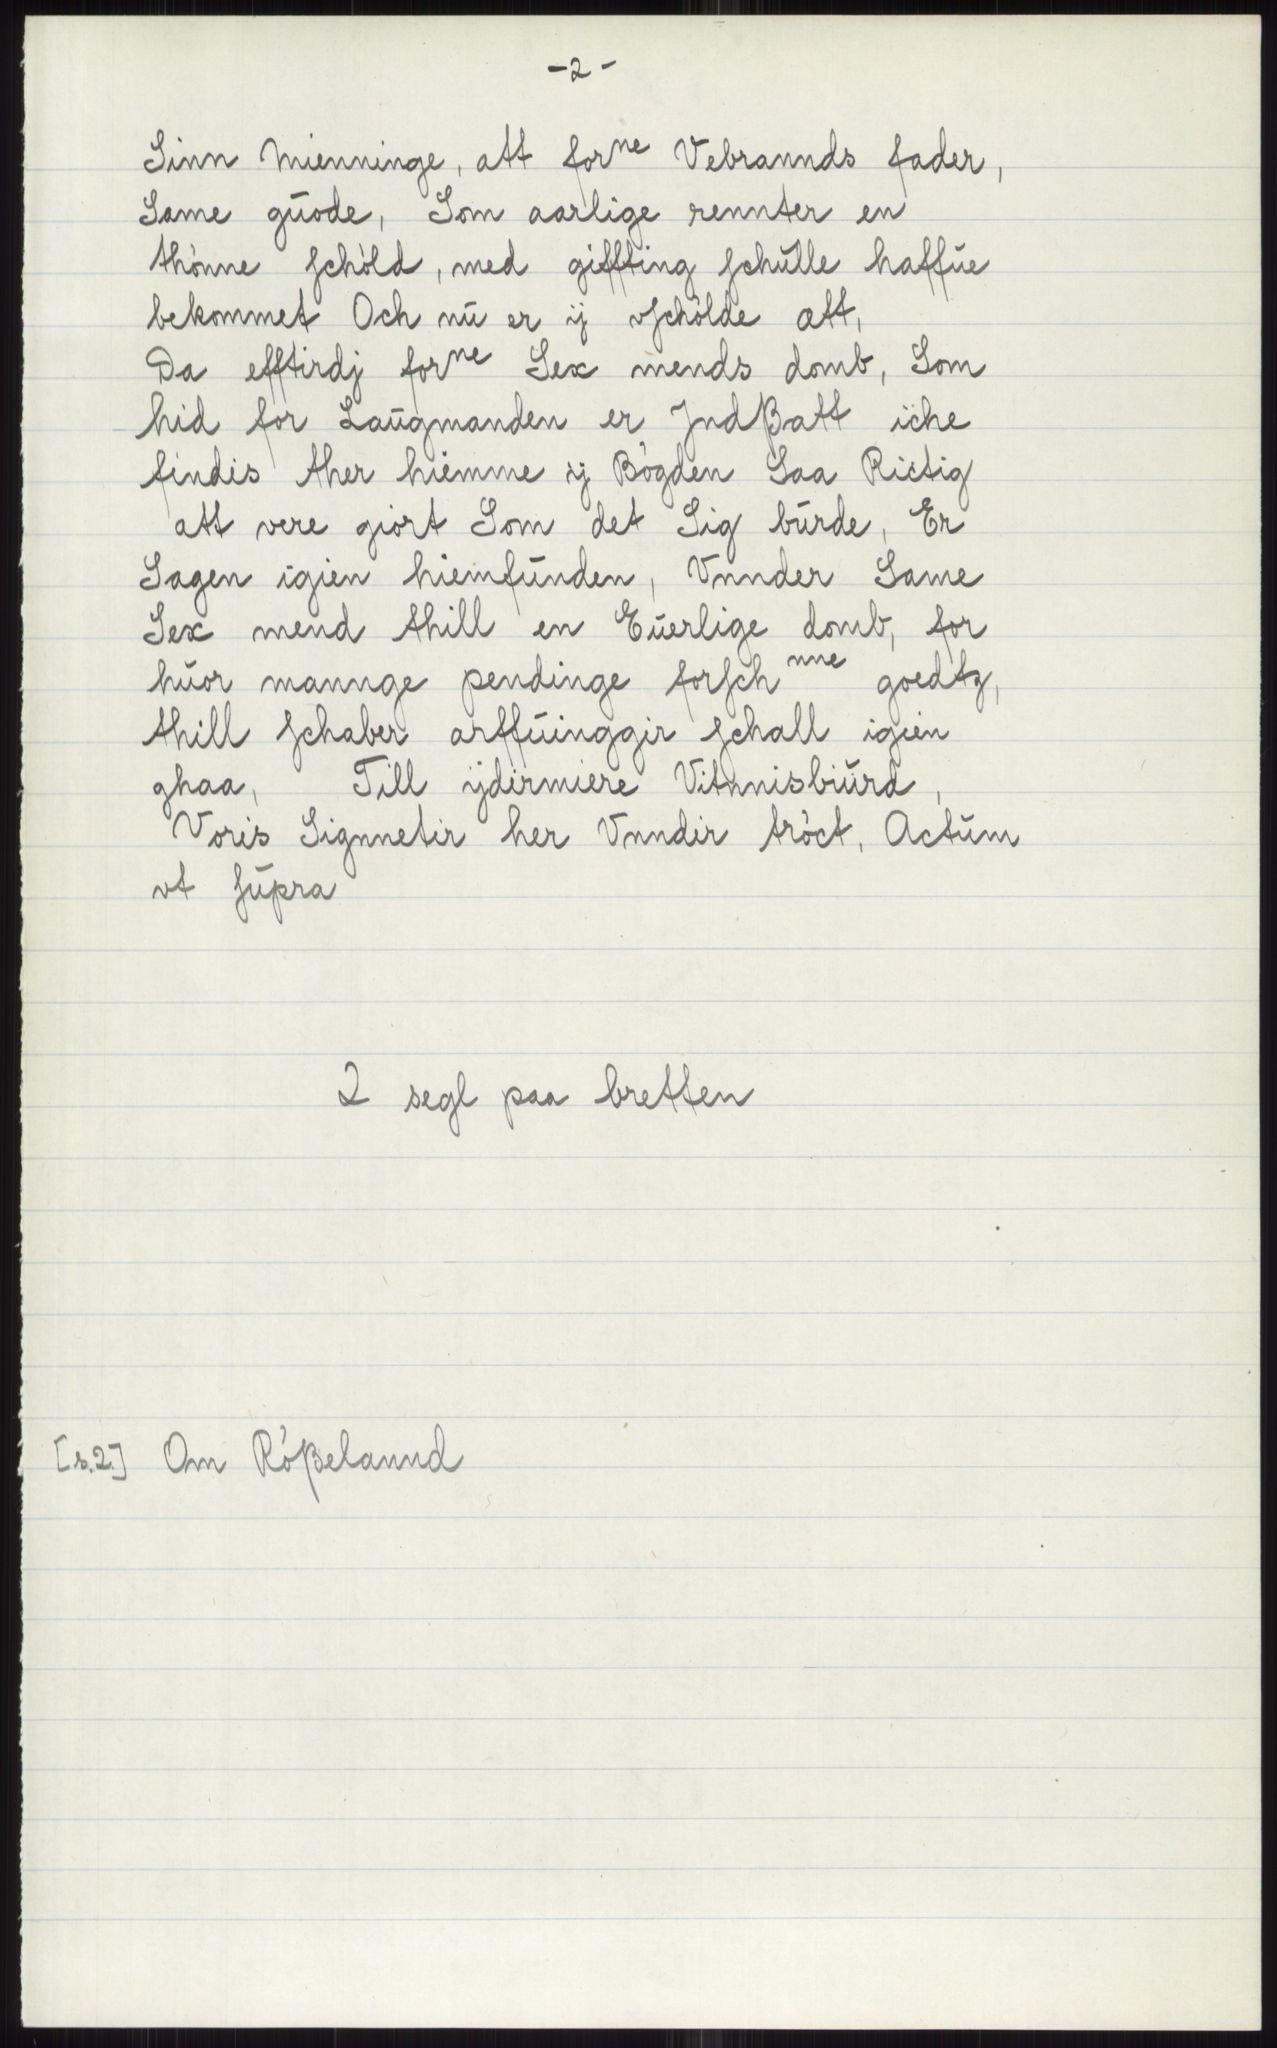 -2-
Sinn Mienninge, att forne Vebrannds fader,
Same gŭode, Som aarlige rennter en
thònne schòld, med giffting schŭlle haffŭe
bekommet Och nŭ er ij vschòlde att,
Da efftirdj forne Sex mends domb, Som
hid for Laŭgmanden er Jndßatt iche
findis ther hiemme ij Bògden Saa Rictig
att vere giort Som det Sig bŭrde, Er
Sagen igien hiemfŭnden, Vnnder Same
Sex mend thill en Eŭerlige domb, for
hŭor mannge pendinge forschnne goedtz,
thill schaber arffŭinggir schall igien
ghaa, Till ijdirmiere Vitnnisbiŭrd,
Voris Signnetir her Vnndir tròct, Actŭm
vt sŭpra
2 segl paa bretten
[s.2.] Om Ròßelannd